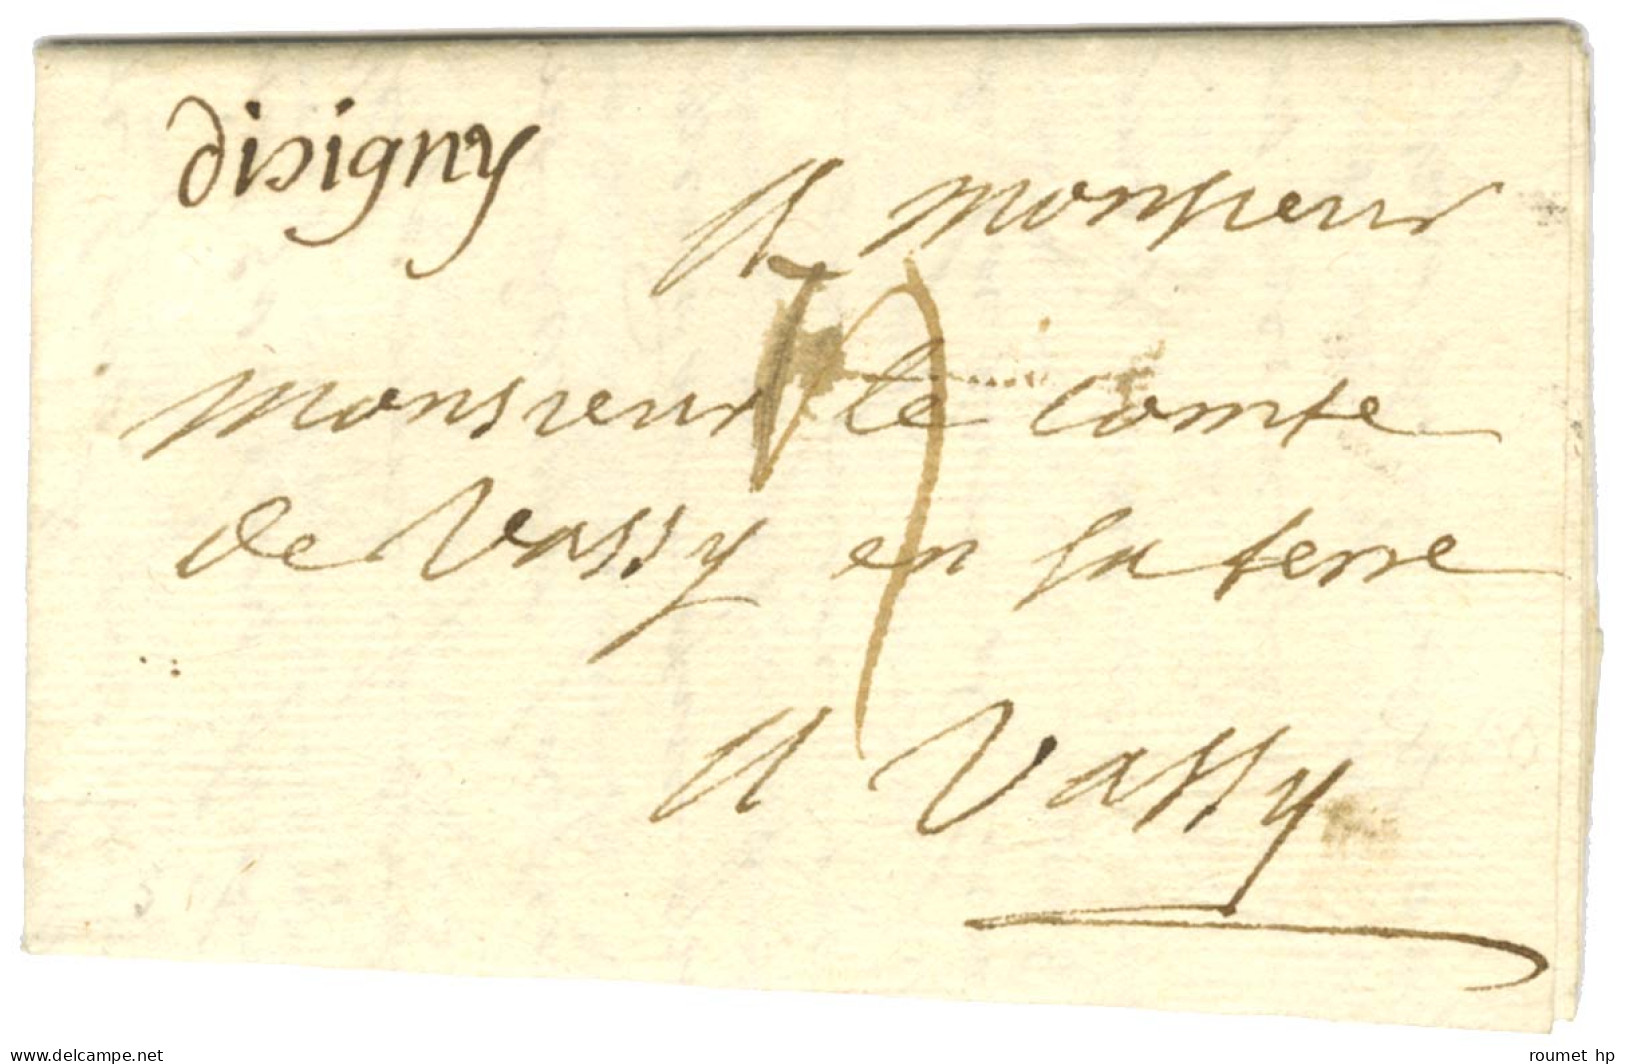 disigny
A monsieur
monsieur le comte
de Vassy en sa terre
A Vassy
www.delcampe.net
roumet hp